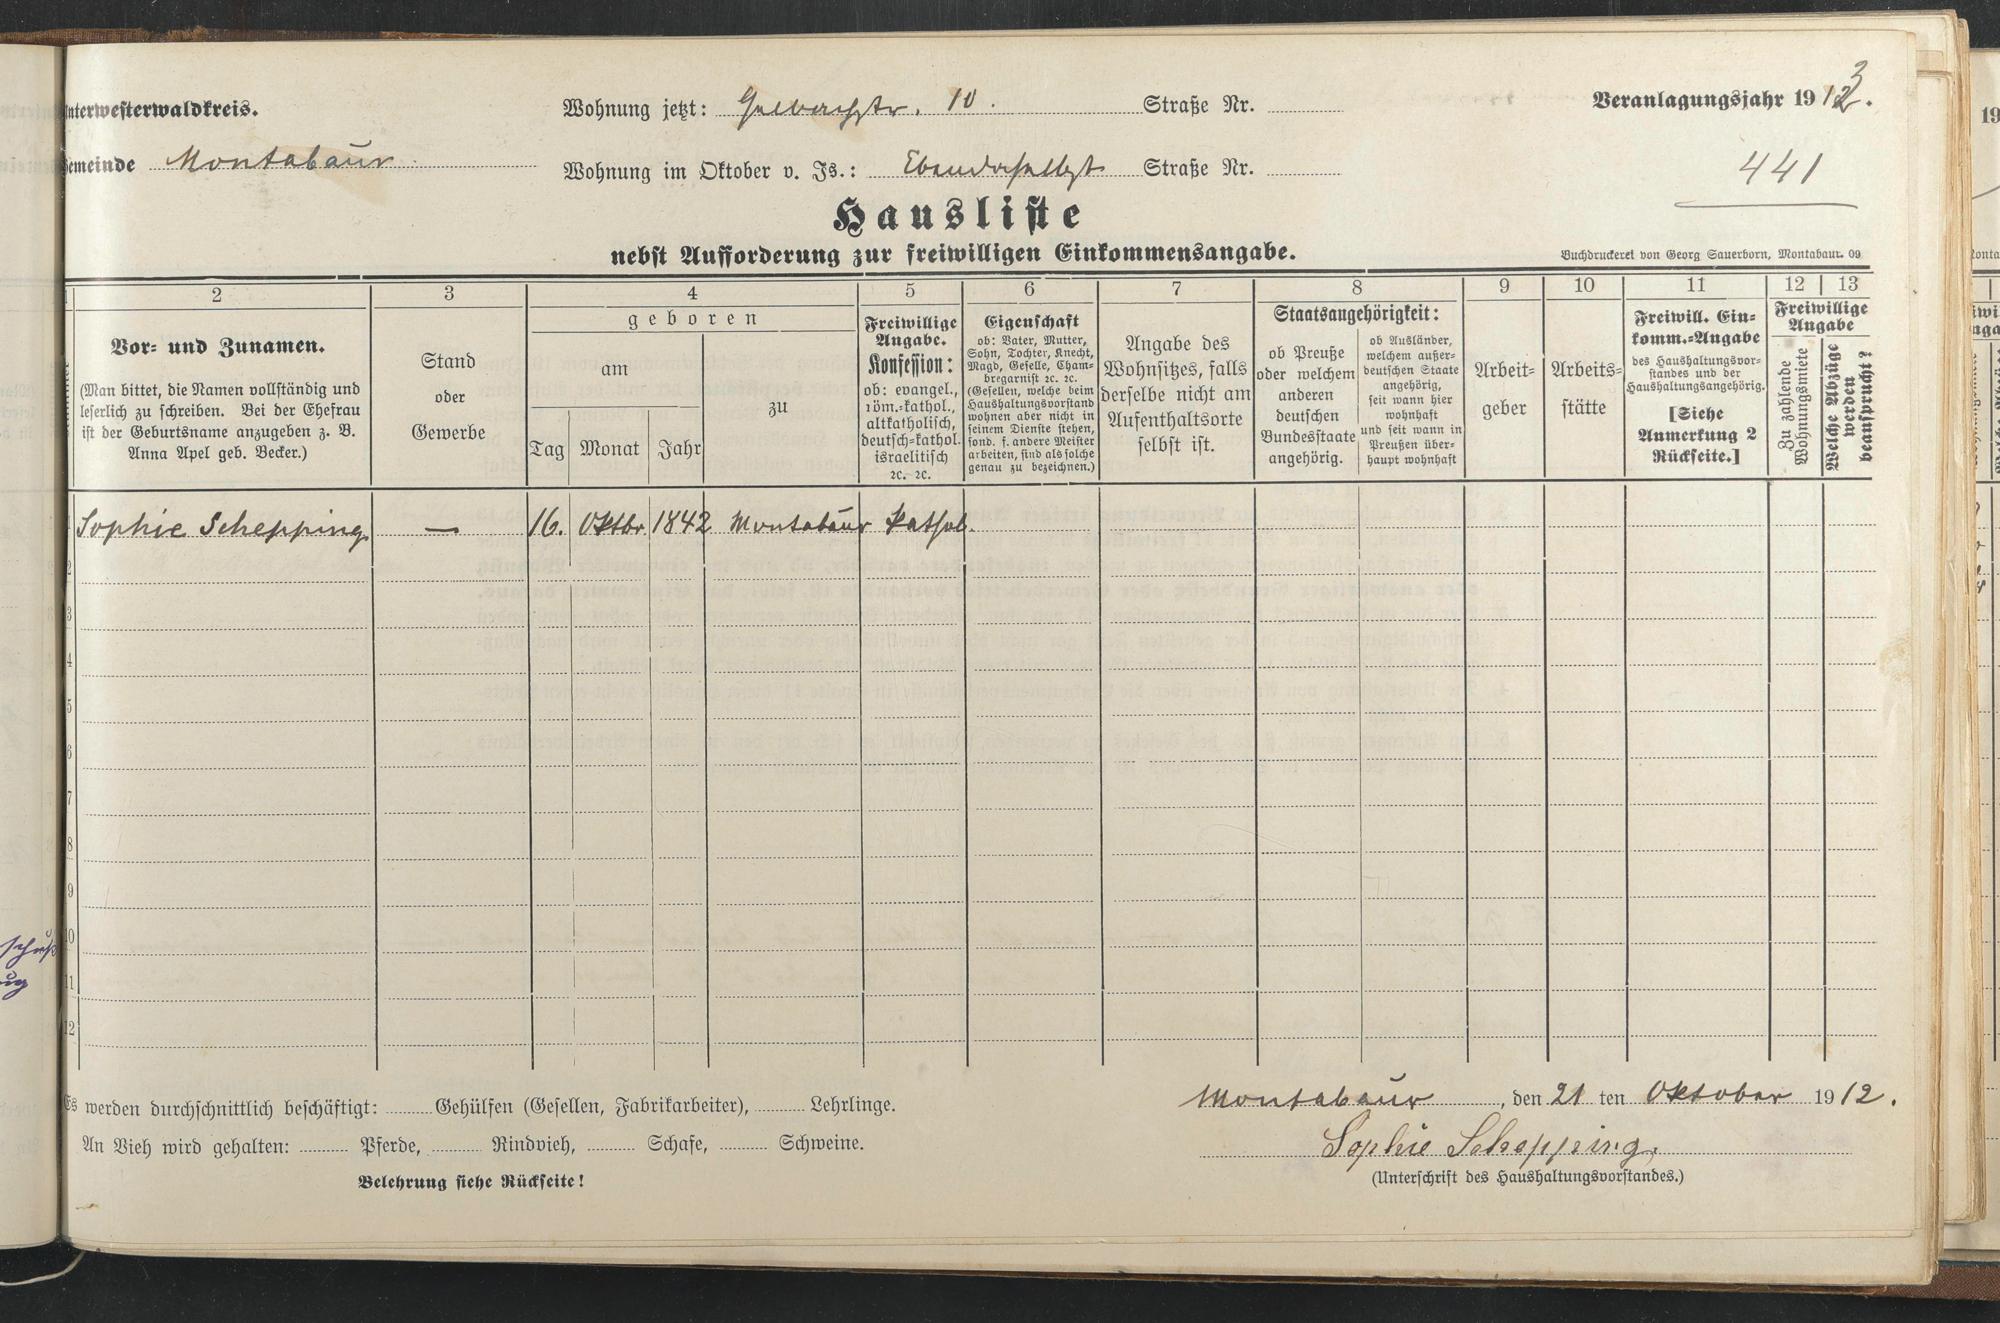 Unterwesterwaldkreis.
Wohnung jetzt: Gelbachstr. 10. Straße Nr.
Veranlagungsjahr 1913.
Gemeinde Montabaur
Wohnung im Oktober v. Js.: Ebendaselbst Straße Nr.
441
Hausliste
nebst Aufforderung zur freiwilligen Einkommensangabe.
Buchdruckerei von Georg Sauerborn, Montabaur. 09
1 2 3 4 5 6 7 8 9 10 11 12 13
Vor- und Zunamen.
(Man bittet, die Namen vollständig und
leserlich zu schreiben. Bei der Ehefrau
ist der Geburtsname anzugeben z. B.
Anna Apel geb. Becker.)
Stand
oder
Gewerbe
geboren
am
Tag Monat Jahr
zu
Freiwillige
Angabe.
Konfession:
ob: evangel.,
röm.-kathol.,
altkatholisch,
deutsch-kathol.
israelitisch
2c. 2c.
Eigenschaft
ob: Vater, Mutter,
Sohn, Tochter, Knecht,
Magd, Geselle, Cham-
bregarnist 2c. 2c.
(Gesellen, welche beim
Haushaltungsvorstand
wohnen aber nicht in
seinem Dienste stehen,
sond. f. andere Meister
arbeiten, sind als solche
genau zu bezeichnen.)
Angabe des
Wohnsitzes, falls
derselbe nicht am
Aufenthaltsorte
selbst ist.
Staatsangehörigkeit:
ob Preuße
oder welchem
anderen
deutschen
Bundesstaate
angehörig.
ob Ausländer,
welchem außer-
deutschen Staate
angehörig,
seit wann hier
wohnhaft
und seit wann in
Preußen über-
haupt wohnhaft
Arbeit-
geber
Arbeits-
stätte
Freiwill. Ein-
komm.-Angabe
des Haushaltungsvor-
standes und der
Haushaltungsangehörig.
[Siehe
Anmerkung 2
Rückseite.]
Freiwillige
Angabe
Zu zahlende
Wohnungsmiete
Welche Abzüge
werden
beansprucht?
Sophie Schepping — 16. Oktbr. 1842 Montabaur kathol.
2
3
4
5
6
7
8
9
10
11
12
Es werden durchschnittlich beschäftigt: Gehülfen (Gesellen, Fabrikarbeiter), Lehrlinge.
An Vieh wird gehalten: Pferde, Rindvieh, Schafe, Schweine.
Belehrung siehe Rückseite!
Montabaur, den 21 ten Oktober 1912.
Sophie Schepping.
(Unterschrift des Haushaltungsvorstandes.)